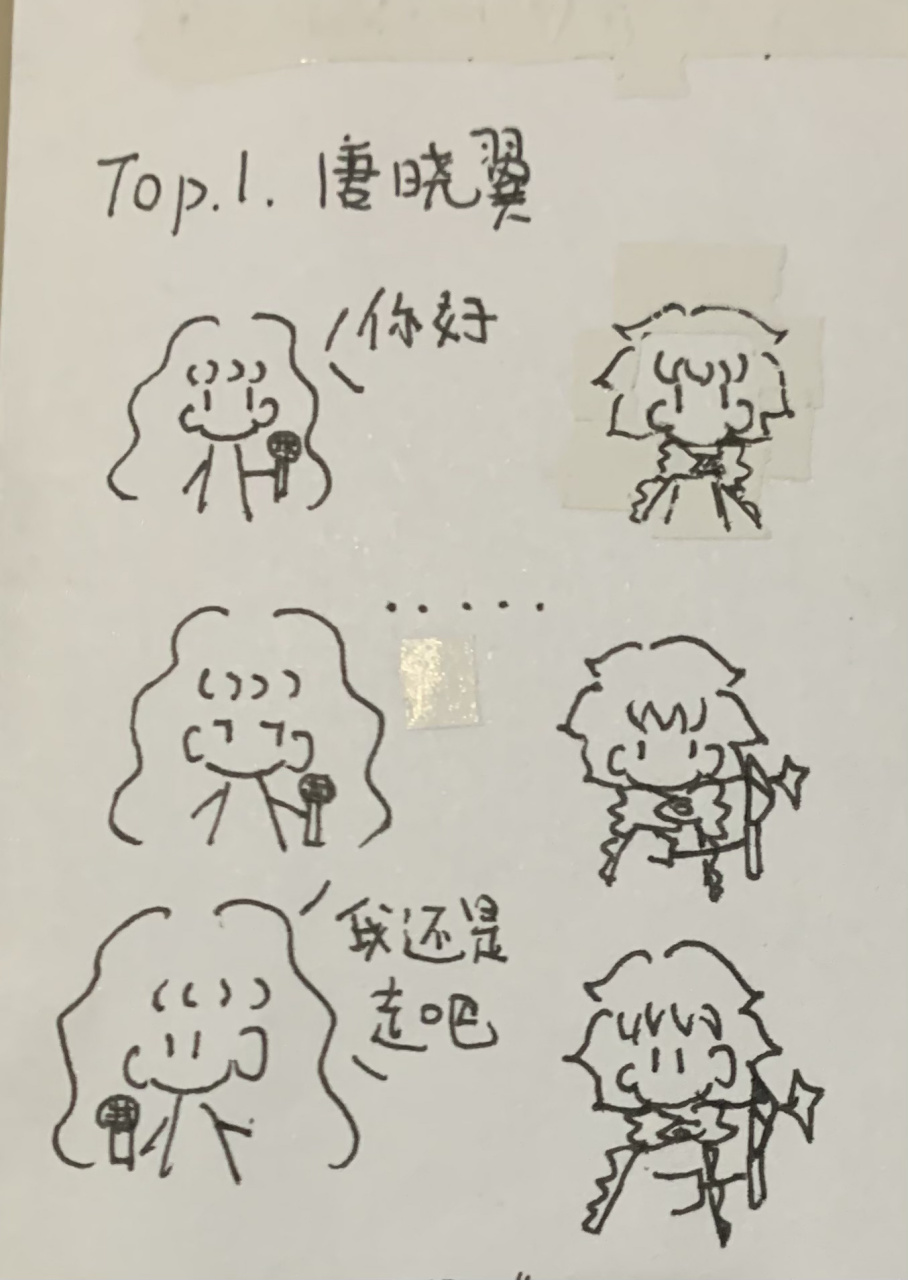 Top.1. 唐晓翼
你好
.....
我还是
走吧